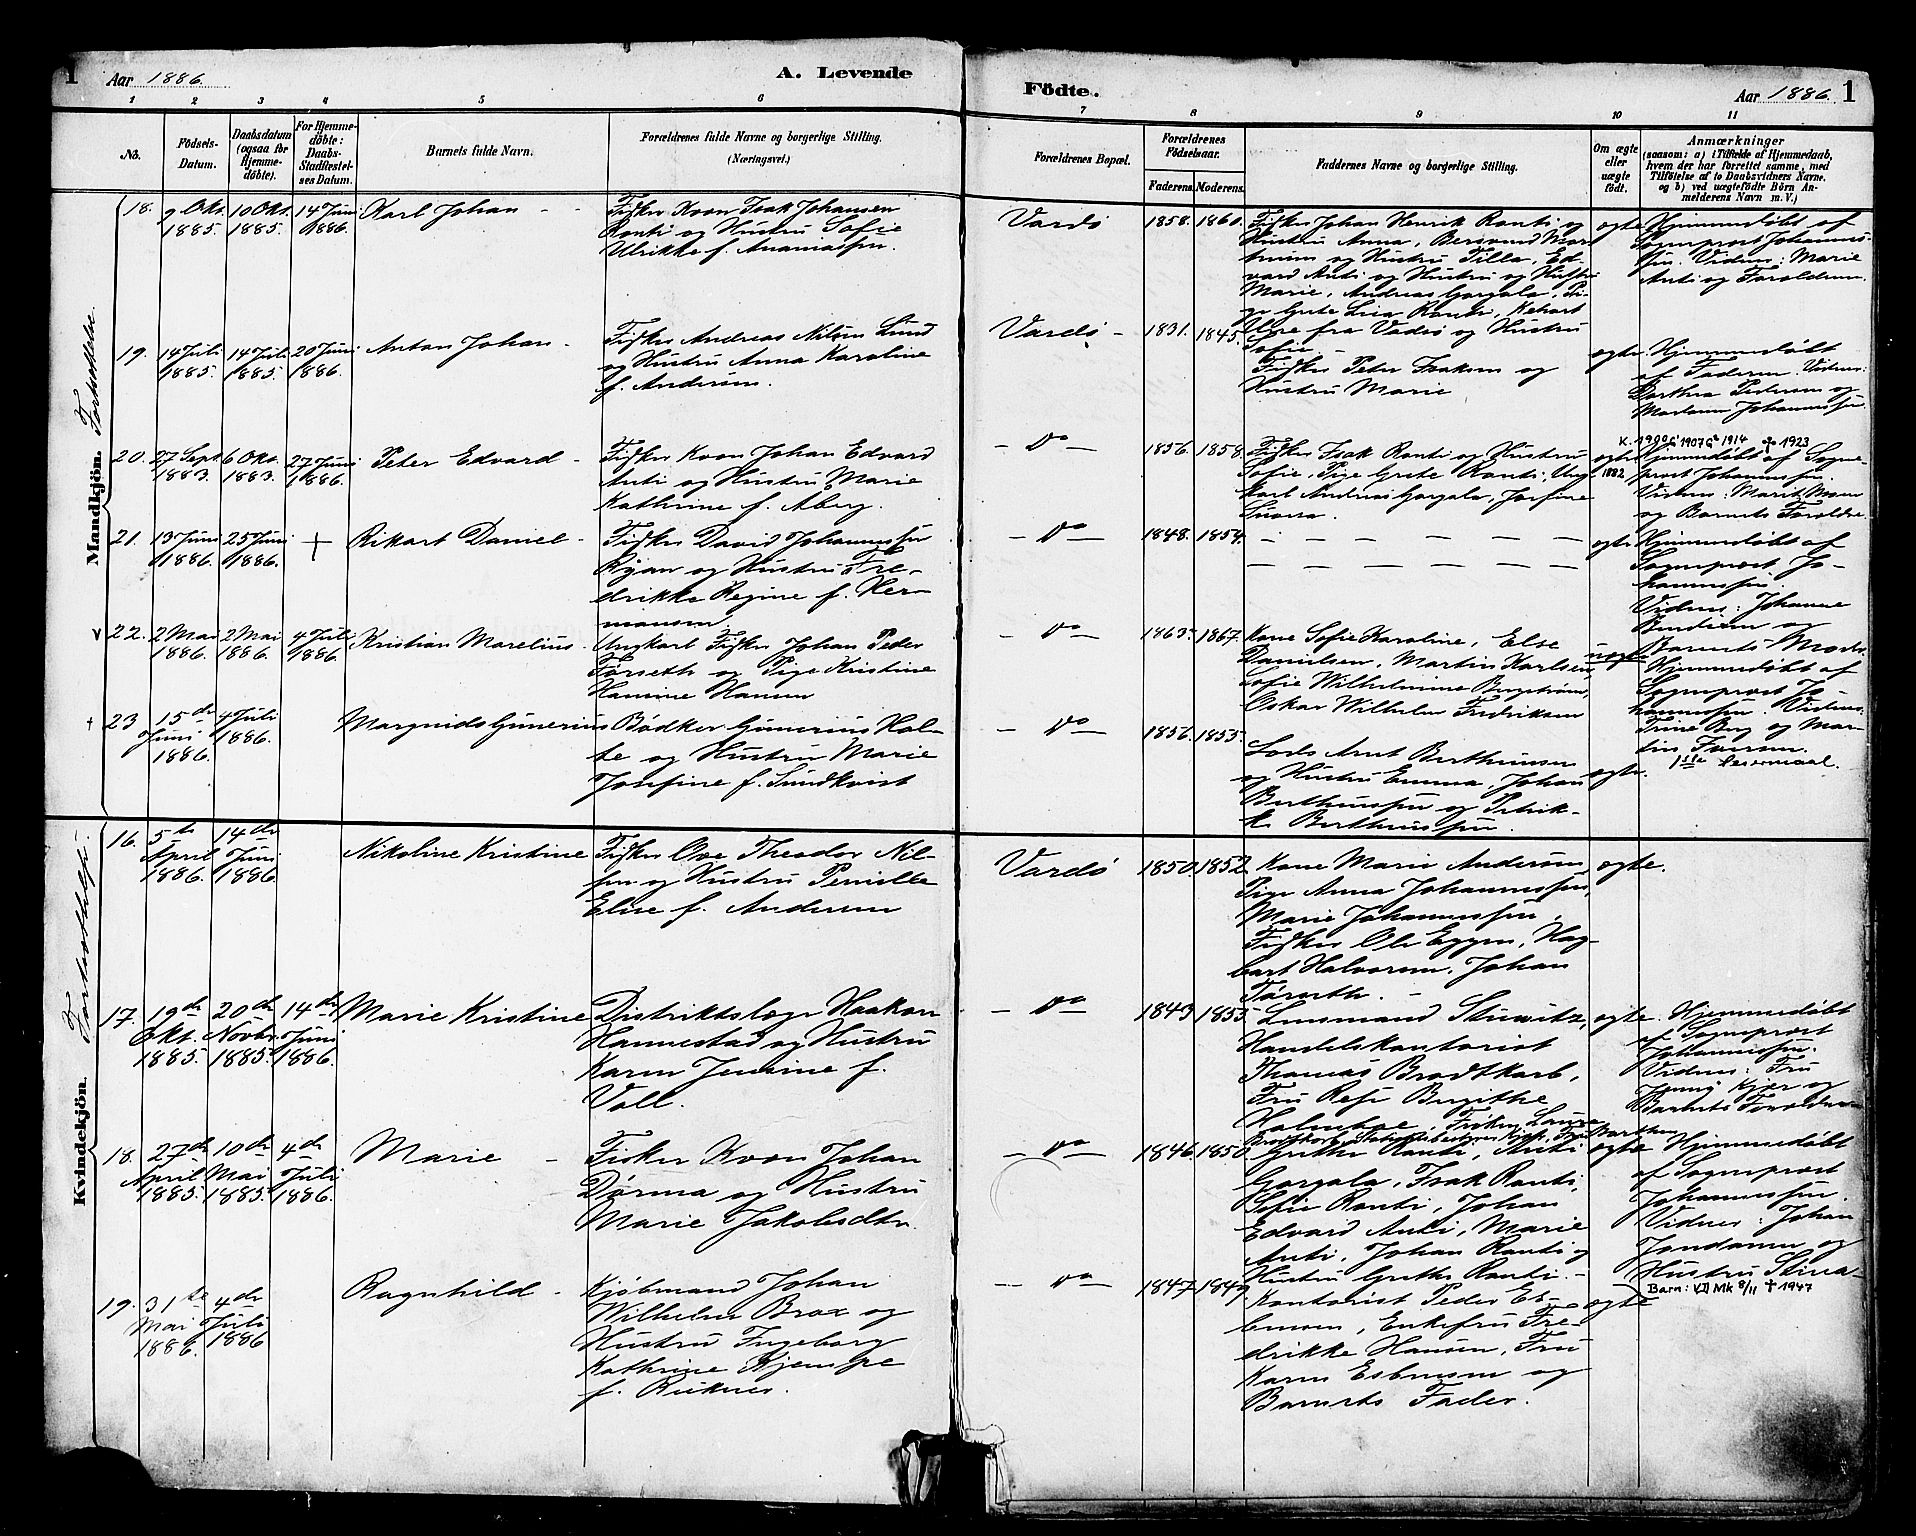 1 Aar 1886. A. Levende Födte. Aar 1886. 1
1 2 3 4 5 6 7 8 9 10 11
No.
Födsels-
Datum.
Daabsdatum
(ogsaa for
Hjemme-
döbte).
For Hjemme-
döbte:
Daabs-
Stadfæstel-
ses Datum.
Barnets fulde Navn.
Forældrenes fulde Navne og borgerlige Stilling.
(Næringsvei.)
Forældrenes Bopæl.
Forældrenes
Födselsaar.
Faderens. Moderens.
Faddernes Navne og borgerlige Stilling.
Om ægte
eller
uægte
födt.
Anmærkninger
(saasom: a) i Tilfælde af Hjemmedaab,
hvem der har forrettet samme, med
Tilföielse af to Daabsvidners Navne.
og b) ved uægtefödte Börn An-
melderens Navn m. V.)
Mandkjön. Fortsættelse.
18.
9 Okt.
1885.
10 Okt.
1885.
14 Juni
1886.
Karl Johan
Fisker Kvæn Isak Johansen
Ranti og Hustru Sofie
Ulrikke f. Ananiassen
Vardö
1858. 1860.
Fisker Johan Henrik Ranti og
Hustru Anna, Bersvend Mor
og Hustru Tilla, Ed-
vard Anti og Hustru
Marie, Andreas Gorgala, Pi-
ge Grete Lisa Ranti,
fra Vadsö og Hustru
Sofie
ægte
Hjemmedöbt af
Sogneprest Johannes-
sen. Vidner: Marie
Anti og Forældrene.
19.
14 Juli
1885.
14 Juli
1885.
20 Juni
1886.
Anton Johan
Fisker Andreas Nilsen Lund
og Hustru Anna Karoline
f. Andersen.
Vardö
1831. 1845.
Fisker Peter Isaksen og
Hustru Marie
ægte.
Hjemmedöbt
af Faderen. Vidner:
Dorthea Pedersen og
Johannessen.
20.
27 Sept
1883.
6 Okt.
1883.
27 Juni
1886.
Peter Edvard
Fisker Kvæn Johan Edvard
Anti og Hustru Marie
Kathrine f. Aberg.
Do
1856. 1858.
Fisker Isak Ranti og Hustru
Sofie, Pige Grete Ranti, Ung
karl Andreas Gorgala, Josefine
ægte
K. 1900 G1 1907 G2 1914 ✝ 1923
1882
Hjemmedöbt af Sogne-
prest Johannessen.
Vidner: Marit
og Barnets Forældre
21.
13 Juni
1886.
25 Juni
1886.
+
Rikart Daniel
Fisker David Johannessen
og Hustru Fre-
drikke Regine f. Her-
mansen
Do
1848. 1854.
ægte
Hjemmedöbt af
Sogneprest Jo-
hannessen.
Vidner: Johanne
og
Barnets Moder
v 22.
2 Mai
1886.
2 Mai
1886.
4 Juli
1886.
Kristian Marelius
Ungkarl Fisker Johan Peder
Forseth og Pige Kristine
Hansine Hansen
Do
1863. 1867.
Kone Sofie Karoline, Else
Danielsen, Martin Karlsen,
Sofie Wilhelmine Bergström,
Oskar Wilhelm Fredriksen
uægte
Hjemmedöbt af
Sogneprest Jo-
hannessen. Vidner:
Trine Berg og Mar-
tin
1ste Leiermaal.
† 23
15de
Juni
1886.
4 Juli
1886.
Margnids Gunerius
Bödker Gunerius Hol-
te og Hustru Marie
Josefine f. Sundkvist
Do
1856. 1853.
Lods Arnt Berthinsen
og Hustru Emma, Johan
Berthinssen og Petrik-
ke Berthinssen.
ægte.
Kvindekjön. Fortsættelse.
16.
5te
April
1886.
14de
Juni
1886.
Nikoline Kristine
Fisker Ove Theodor Nil-
sen og Hustru Pernille
Elise f. Andersen
Vardö
1850. 1852.
Kone Marie Andersen,
Pige Anna Johannessen,
Marie Johannessen,
Fisker Ole Eggen, Hag-
bart Halvorsen, Johan
ægte.
17.
19de
Okt.
1885.
20de
Novbr.
1885.
14de
Juni
1886.
Marie Kristine
Distriktslæge Haakon
Hannestad og Hustru
Karen Jensine f.
Voll.
Do
1843 1855
Lensmand
Handelskontorist
Thomas Brodtkorb,
Fru Birgithe
Holmboe, Fröken Laura
Brodtkorb,
ægte.
Hjemmedöbt
af Sogneprest
Johannessen.
Vidner: Fru
Jenny Kjær og
Barnets Forældre
18.
27de
April
1885.
10de
Mai
1885.
4de
Juli
1886.
Marie
Fisker Kvæn Johan
Dörma og Hustru
Marie Jakobsdtr.
Do
1846. 1850.
Grethe Ranti, Anti
Gorgala, Isak Ranti,
Sofie Ranti, Johan
Edvard Anti, Marie
Anti, Johan Ranti og
Hustru Grethe Ranti.
ægte
Hjemmedöbt
af Sogneprest
Johannessen.
Vidner: Johan
og
Hustru
19.
31te
Mai
1886.
4de
Juli
1886
Ragnhild
Kjöbmand Johan
Wilhelm Brox og
Hustru Ingeborg
Kathrine
Do
1847. 1849.
Kontorist Peder Es-
bensen, Enkefru Fre-
drikke Hansen, Fru
Karen Esbensen og
Barnets Fader.
ægte
Barn: VII Mk 8/11 ✝ 1947